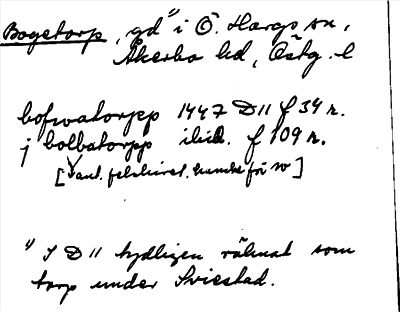 Bogetorp, gd¹⁾ i Ö. Hargs sn,
Åkerbo hd, Östg. l
bofwatorpp 1447 D 11 f 34 r.
j bolbatorpp ibid. f 109 r.
[ sant. felskrivet, kanske för w ]
¹⁾ I D 11 tydligen räknat som
torp under Sviestad.